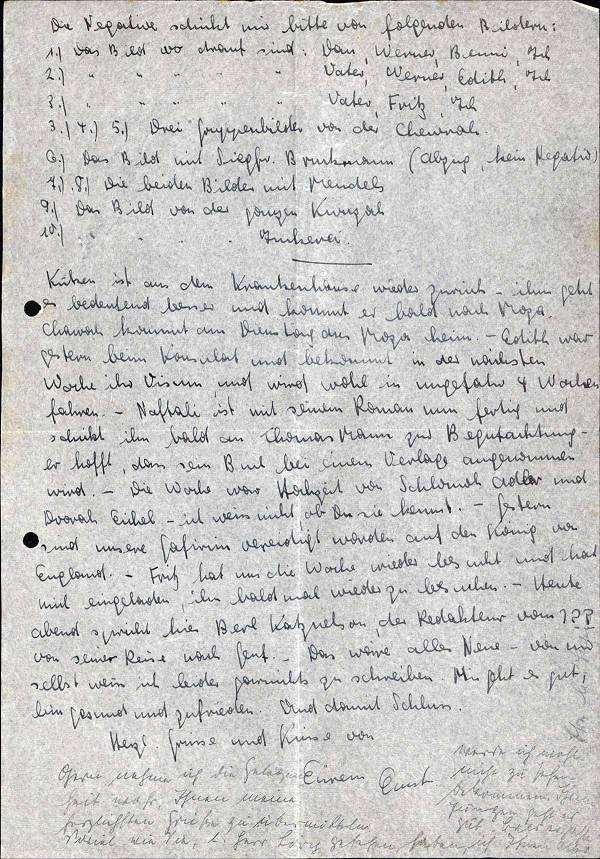 Die Negative schickt mir bitte von folgenden Bildern:
1.) Das Bild wo drauf sind: Dan, Werner, Benni, Ich
2.) " " " " " Vater, Werner, Edith, Ich
3.) " " " " " Vater, Fritz, Ich
3.) 4.) 5.) Drei Gruppenbilder von der Chewrah.
6.) Das Bild mit Siegfr. Bruckmann (Abzug, kein Negativ)
7.) 8.) Die beiden Bilder mit Mendels
9.) Das Bild von der ganzen Kwuzah
10.) " " " " Imkerei.
ist aus dem Krankenhause wieder zurück - ihm geht
es bedeutend besser und kommt er bald nach Moza.
Chawah kommt am Dienstag aus Moza heim. - Edith war
gestern beim Konsulat und bekommt in der nächsten
Woche ihr Visum und wird wohl in ungefähr 4 Wochen
fahren. - Naftali ist mit seinem Roman nun fertig und
schickt ihn bald an Thomas Mann zur Begutachtung -
er hofft, dass sein Buch bei einem Verlage angenommen
wird. - Die Woche war Hochzeit von Schlomoh Adler und
Dworah Eichel - ich weiss nicht ob Du sie kennst. - Gestern
sind unsere Gafirim vereidigt worden auf den König von
England. - Fritz hat uns die Woche wieder besucht und hat
mich eingeladen, ihn bald mal wieder zu besuchen. - Heute
abend spricht hier Berl Katznelson, der Redakteur vom
von seiner Reise nach Genf. - Das wäre alles Neue - von mir
selbst weiss ich leider garnichts zu schreiben. Mir geht es gut,
bin gesund und zufrieden. Und damit Schluss.
Herzl. Grüsse und Küsse von
Eurem Ernst
Gern nehme ich die Gelegen
heit wahr, Ihnen meine
herzlichsten Grüße zu übermitteln